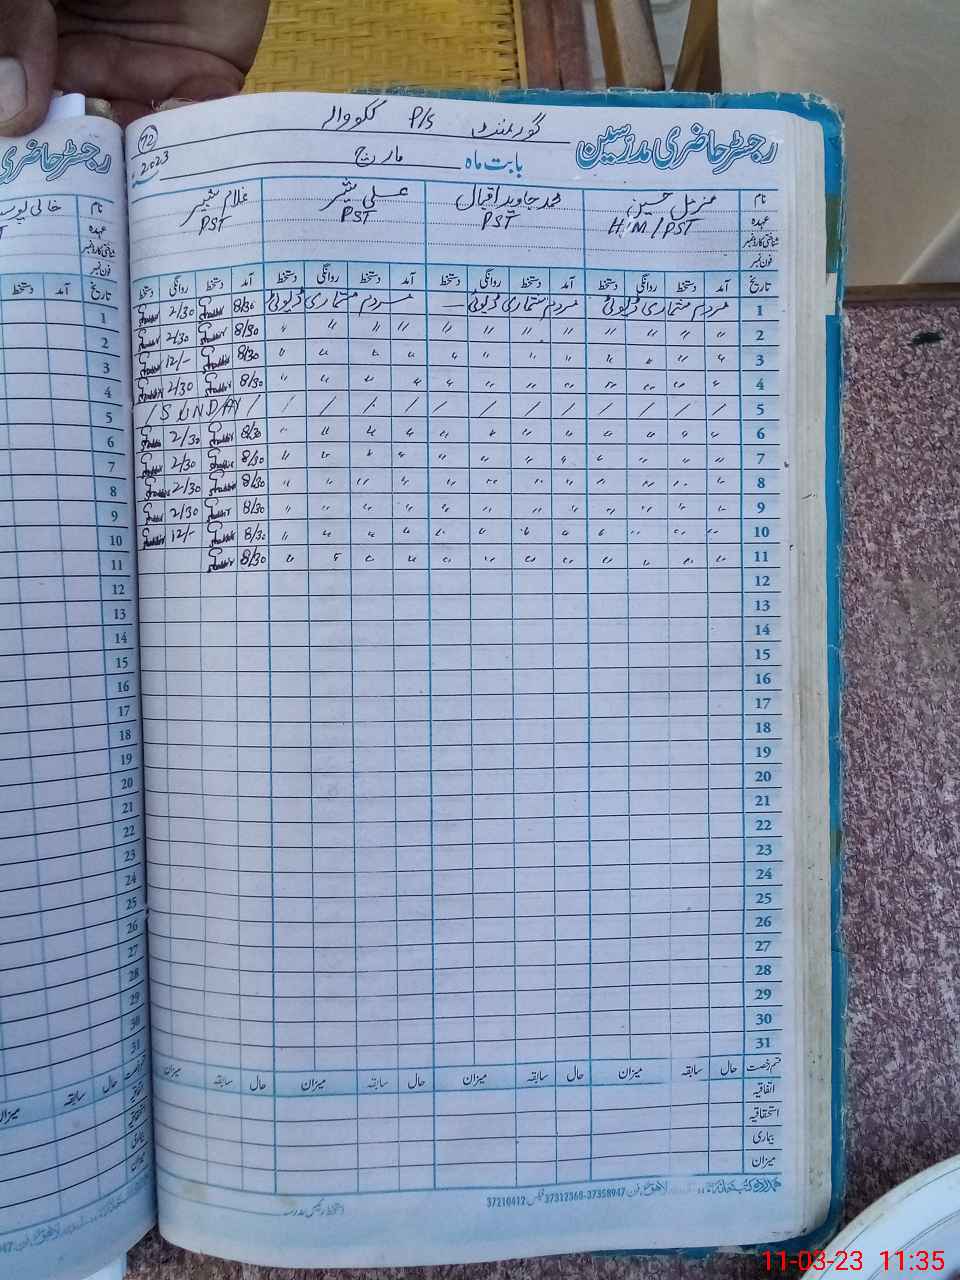 رجسٹر حاضری مدرسین
گورنمنٹ P/S ککووالہ
12
بابت ماہ مارچ 2023
نام مزمل حسین محمد جاوید اقبال علی شیر غلام شبیر
عہدہ H.M/PST PST PST PST
شناختی کارڈ نمبر
فون نمبر
تاریخ آمد دستخط روانگی دستخط آمد دستخط روانگی دستخط آمد دستخط روانگی دستخط آمد دستخط روانگی دستخط
1 مردم شماری ڈیوٹی مردم شماری ڈیوٹی مردم شماری ڈیوٹی 8/30 Shabbir 2/30 Shabbir
2 " " " " " " " " " " " " 8/30 Shabbir 2/30 Shabbir
3 " " " " " " " " " " " " 8/30 Shabbir 12/- Shabbir
4 " " " " " " " " " " " " 8/30 Shabbir 2/30 Shabbir
5 / / / / / / / / / / / / / SUNDAY /
6 " " " " " " " " " " " " 8/30 Shabbir 2/30 Shabbir
7 " " " " " " " " " " " " 8/30 Shabbir 2/30 Shabbir
8 " " " " " " " " " " " " 8/30 Shabbir 2/30 Shabbir
9 " " " " " " " " " " " " 8/30 Shabbir 2/30 Shabbir
10 " " " " " " " " " " " " 8/30 Shabbir 12/- Shabbir
11 " " " " " " " " " " " " 8/30 Shabbir
12
13
14
15
16
17
18
19
20
21
22
23
24
25
26
27
28
29
30
31
قسم رخصت حال سابقہ میزان حال سابقہ میزان حال سابقہ میزان حال سابقہ میزان
اتفاقیہ
استحقاقیہ
بیماری
میزان
37358947-37312368 فیکس 37210412
رجسٹر حاضری مدرسین
نام خالی پوسٹ
عہدہ
شناختی کارڈ نمبر
فون نمبر
تاریخ آمد دستخط
1
2
3
4
5
6
7
8
9
10
11
12
13
14
15
16
17
18
19
20
21
22
23
24
25
26
27
28
29
30
31
حال سابقہ میزان
اتفاقیہ
استحقاقیہ
بیماری
میزان
11-03-23 11:35